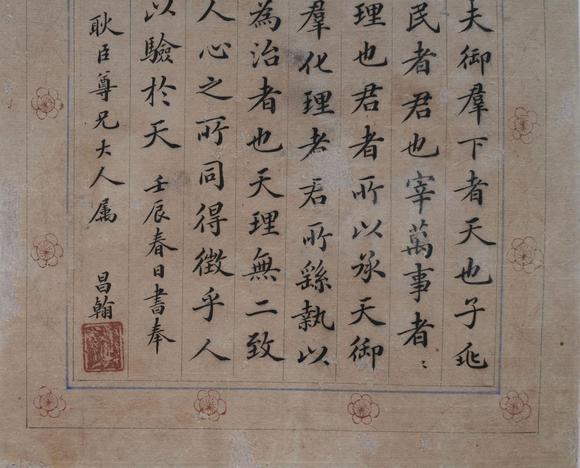 夫御羣下者天也子兆
民者君也宰萬事者〻
理也君者所以承天御
羣化理者君所繇執以
為治者也天理無二致
人心之所同得徵乎人
以驗於天 壬辰春日書奉
耿臣尊兄大人属 昌翰